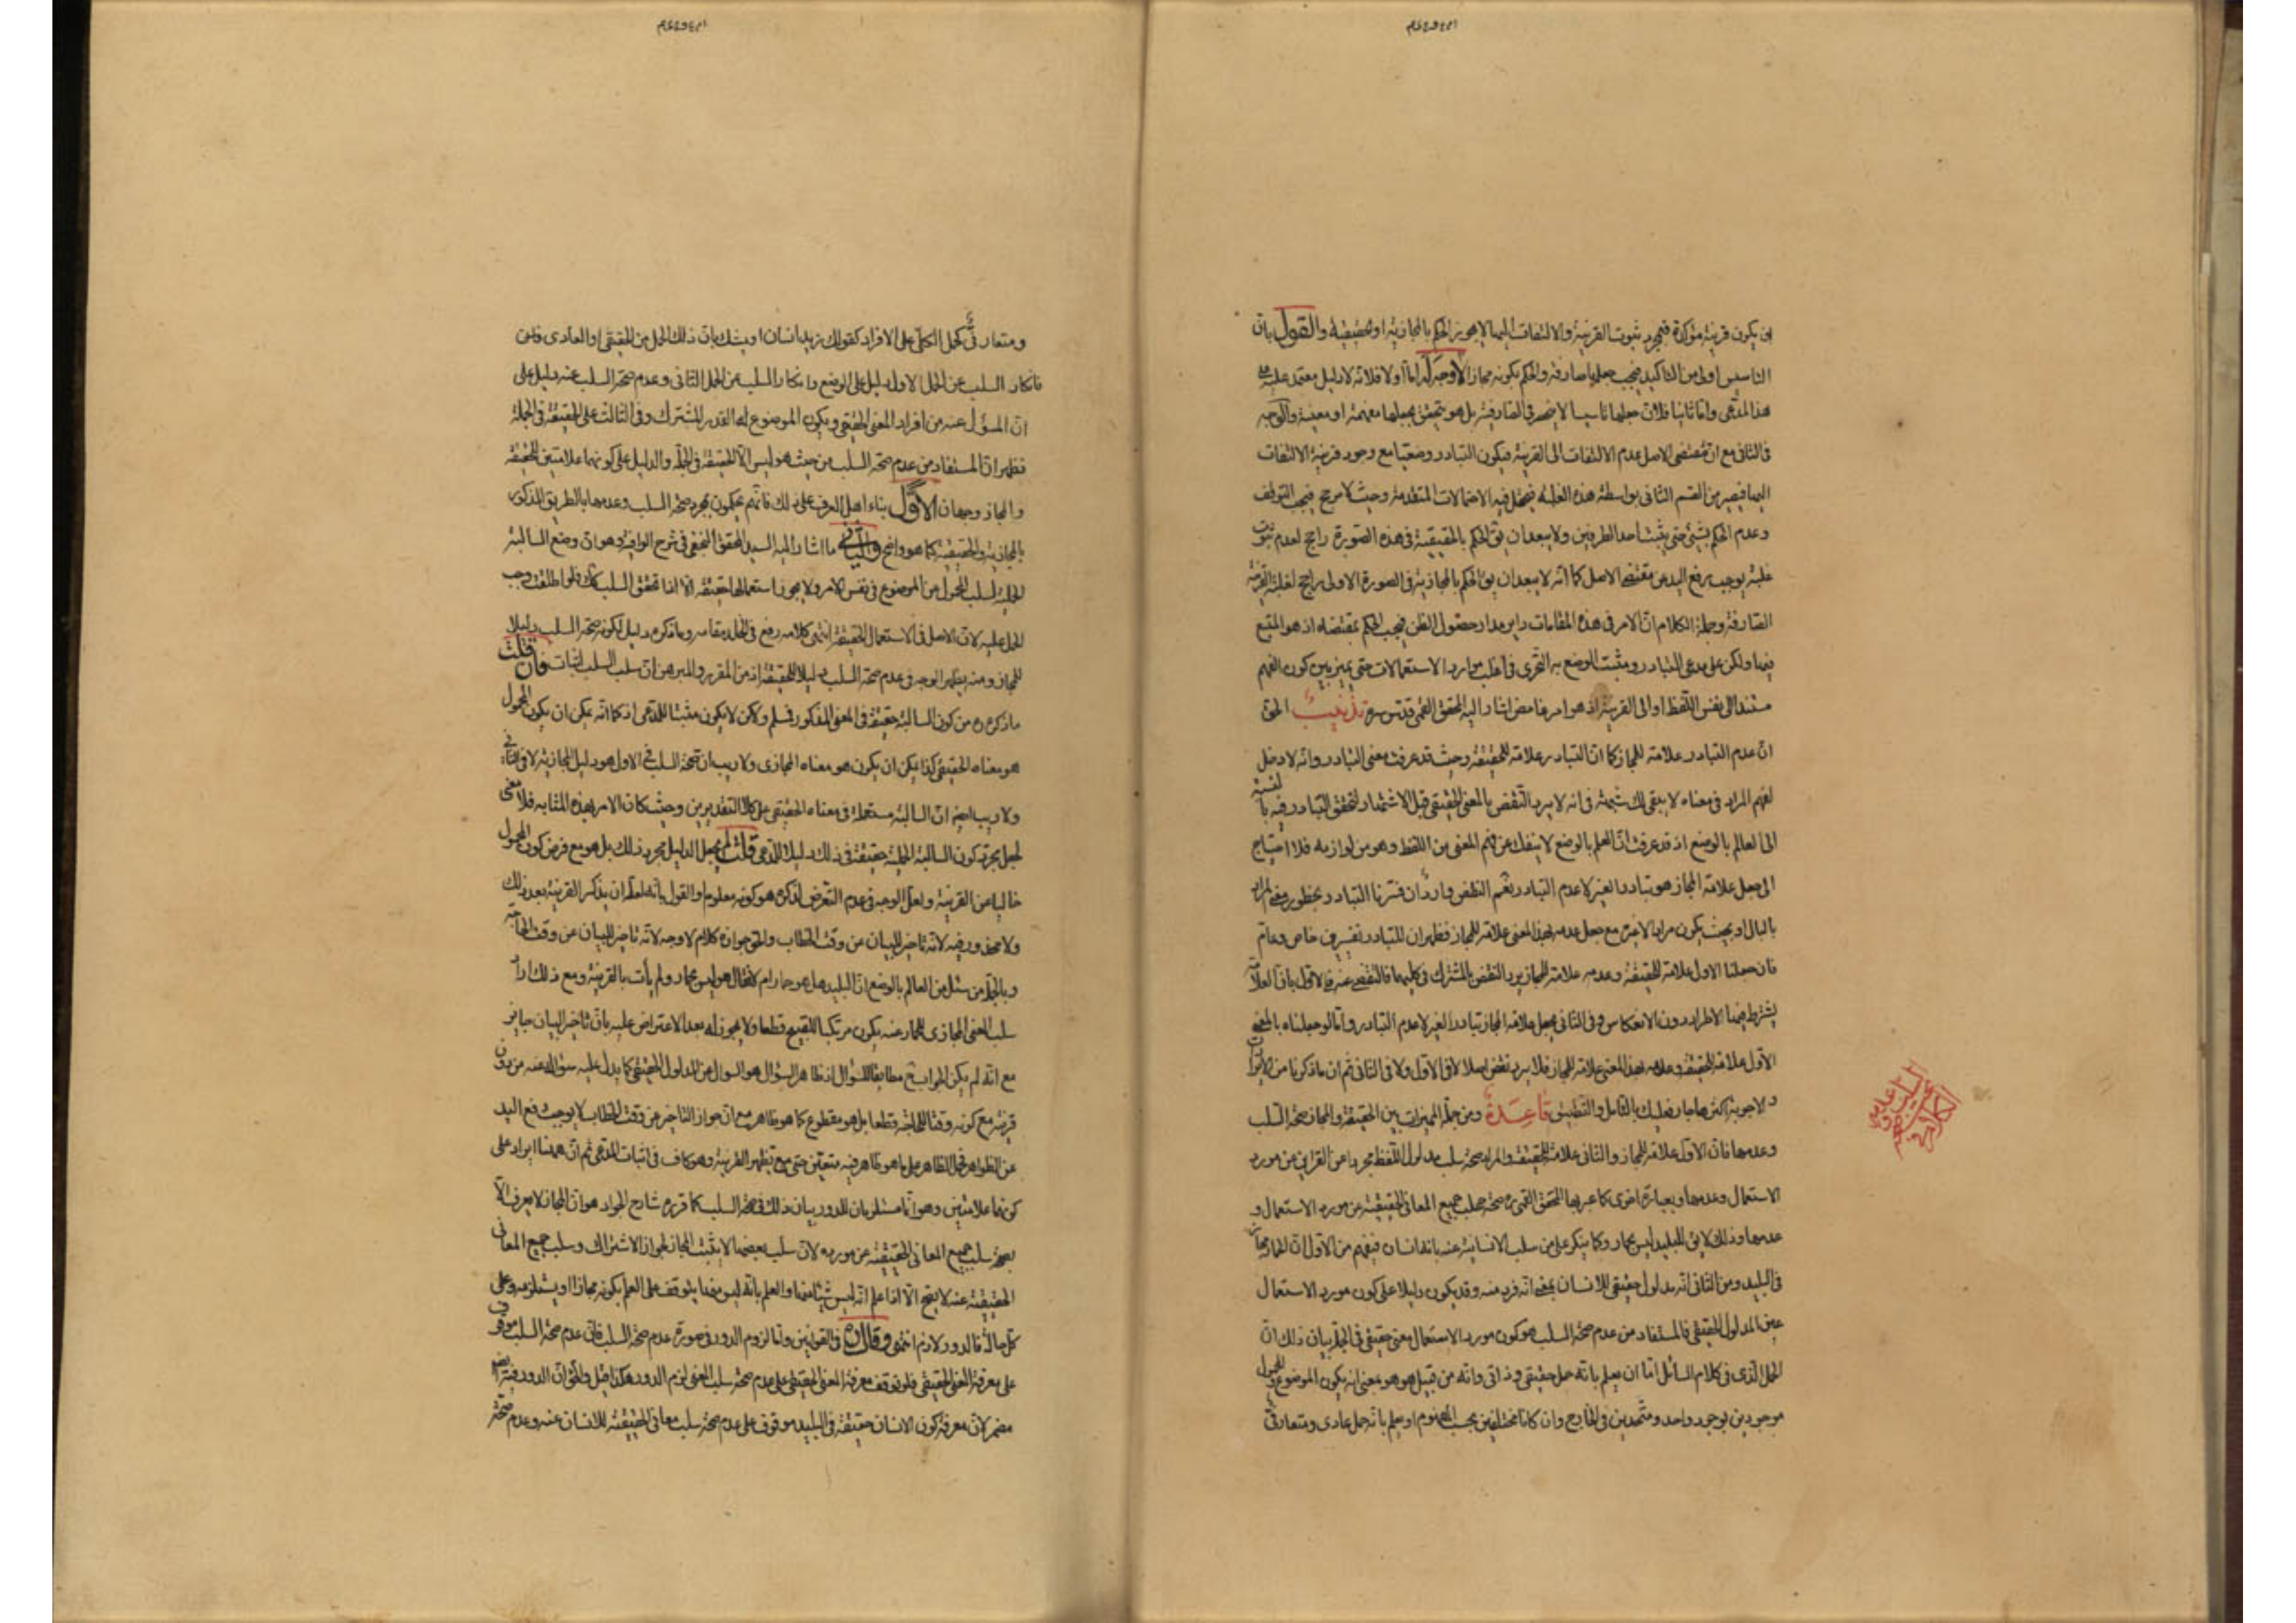 ان يكون قرينة مؤكدة فبمجرد ثبوت القرينة والالتفات اليها لا يجوز الحكم بالمجازية او الحقيقية والقول بان
التاسيس اولى من التاكيد فيجب جعلها صارفة والحكم بكونه مجازا لا وجه له اما اولا فلانه لا دليل معتمد عليه على
هذا المدعى واما ثانيا فلان جعلها تاسيسا لا ينحصر في الصارفية بل هو يتحقق بجعلها مفهمة او معينة والوجه
في الثاني مع ان مقتضى الاصل عدم الالتفات الى القرينة فيكون التبادر وضعيا مع وجود قرينة الالتفات
اليها فيصير من القسم الثاني بواسطة هذه الغلبة فيحتمل فيه الاحتمالات المتقدمة وحيث لا مرجح فيجب التوقف
وعدم الحكم بشيء حتى يثبت احد الطرفين ولا يبعد ان يق الحكم بالحقيقية في هذه الصورة راجح لعدم ثبوت
غلبة يوجب رفع اليد عن مقتضى الاصل كما انه لا يبعد ان يق الحكم بالمجازية في الصورة الاولى راجح لغلبة القرينة
الصارفة وجملة الكلام ان الامر في هذه المقامات داير مدار حصول الظن فيجب الحكم بمقتضاه اذ هو المتبع
فيها ولكن على مدعى التبادر ومثبت الوضع به التحرى في اغلب موارد الاستعمالات حتى يميز بين كون الفهم
مستندا الى نفس اللفظ او الى القرينة اذ هو امر غامض اشار اليه المحقق القمي قدس سره تذنيب الحق
ان عدم التبادر علامة للمجاز كما ان التبادر علامة للحقيقة وحيث قد عرفت معنى التبادر وانه لا دخل
لفهم المراد في معناه لا يبقى لك شبهة في انه لا يرد النقض بالمعنى الحقيقي قبل الاشتهار لتحقق التبادر فيه بالنسبة
الى العالم بالوضع اذ قد عرفت ان العلم بالوضع لا ينفك عن فهم المعنى من اللفظ وهو من لوازمه فلا احتياج
الى جعل علامة المجاز هو تبادر الغير لا عدم التبادر نعم النقض وارد ان فسرنا التبادر بخطور معنى المراد
بالبال او بحيث يكون مرادا لاغير مع جعل عدمه بهذا المعنى علامة للمجاز فظهر ان للتبادر تفسيرين خاص وعام
فان جعلنا الاول علامة للحقيقة وعدمه علامة للمجاز يرد النقض بالمشترك في كليهما فالتفصي عنه في الاول بان العلامة
يشترط فيها الاطراد دون الانعكاس وفي الثاني بجعل علامة المجاز تبادر الغير لا عدم التبادر واما لو جعلناه بالمعنى
الاول علامة للحقيقة وعدمه بهذا المعنى علامة للمجاز فلا يرد نقض اصلا لا في الاول ولا في الثاني ثم ان ما ذكرنا من الايرادات
والاجوبة اكثرها جار فعليك بالتامل والتطبيق قاعدة ومن جملة المميزات بين الحقيقة والمجاز صحة السلب
وعدمها فان الاول علامة للمجاز والثاني علامة للحقيقة والمراد صحة سلب مدلول اللفظ مجردا عن القراين عن مورد
الاستعمال وعدمها وبعبارة اخرى كما عبر بها المحقق القمي ره صحة سلب جميع المعاني الحقيقية عن مورد الاستعمال و
عدمها وذلك لا يق للبليد ليس بحمار وكما ينكر على من سلب الانسانية عنه بانه انسان فيفهم من الاول ان الحمار مجاز
في البليد ومن الثاني انه مدلول حقيقي للانسان بمعنى انه فرد منه وقد يكون دليلا على كون مورد الاستعمال
عين المدلول الحقيقي فالمستفاد من عدم صحة السلب هو كون مورد الاستعمال معنى حقيقي في الجملة بيان ذلك ان
الحمل الذى في كلام السائل اما ان يعلم بانه حمل حقيقي وذاتي وانه من قبيل هو هو بمعنى انه يكون الموضوع والمحمول
موجودين بوجود واحد ومتحدين في الخارج وان كانا مختلفين بحسب المفهوم او يعلم بانه حمل عادى ومتعارفي
ومتعارفي كحمل الكلي على الافراد كقولك زيد انسان او يشك بان ذلك الحمل من الحقيقي او العادى
فانكار السلب عن الحمل الاول دليل على الوضع وانكار السلب عن الحمل الثاني وعدم صحة السلب عنه دليل على
ان المسؤل عنه من افراد المعنى الحقيقي ويكون الموضوع له القدر المشترك وفي الثالث على الحقيقة في الجملة
فظهر ان المستفاد من عدم صحة السلب من حيث هو ليس الا الحقيقة في الجملة والدليل على كونهما علامتين للحقيقة
والمجاز وجهان الاول بناء اهل العرف على ذلك فانهم يحكمون بمجرد صحة السلب وعدمها بالطريق المذكور
بالمجازية والحقيقية كما هو واضح والثاني ما اشار اليه السيد المحقق النجفي في شرح الوافية وهو ان وضع السالبة
الحملية لسلب المحمول عن الموضوع في نفس الامر ولا يجوز استعمالها حقيقة الا اذا تحقق السلب كك فلو اطلقت وجب
الحمل عليه لان الاصل في الاستعمال الحقيقة انتهى كلامه رفع في الخلد مقامه وما ذكره دليل لكونه صحة السلب دليلا
للمجاز ومنه يظهر الوجه في عدم صحة السلب دليلا للحقيقة اذ من المقرر والمبرهن ان سلب السلب اثبات فان قلت
ما ذكره من كون السالبة حقيقة في المعنى المذكور فسلم ولكن لا يكون مثبتا للمدعى اذ كما انه يمكن ان يكون المحمول
هو معناه الحقيقي كذا يمكن ان يكون هو معناه المجازى ولا ريب ان صحة السلب في الاول هو دليل المجازية لا في الثاني
ولا ريب ايضا ان السالبة مستعملة في معناه الحقيقي على كلا التقديرين وحيث كان الامر بهذه المثابة فلا معنى
لجعل مجرد كون السالبة الحملية حقيقة في ذلك دليلا للمدعى قلت لم يجعل الدليل مجرد ذلك بل هو مع فرض كون المحمول
خاليا عن القرينة ولعل الوجه في عدم التعرض لذكره هو كونه معلوم والقول بانه لعله ان يذكر القرينة بعد ذلك
ولا محذور فيه لانه تاخير البيان عن وقت الخطاب والحق جوازه كلام لا وجه لانه تاخير للبيان عن وقت الحاجة
وبالجملة من سئل من العالم بالوضع ان البليد هل هو حمار ام لا فقال هو ليس بحمار ولم يأت بالقرينة ومع ذلك اراد
سلب المعنى المجازى للحمار عنه يكون مرتكبا للقبيح قطعا ولا يجوز له بعد الاعتراض عليه بان تاخير البيان جايز
مع انه لم يكن الجواب ح مطابقا للسؤال اذ ظاهر السؤال هو السوال عن المدلول الحقيقي كما يدل عليه سؤاله عنه من دون
قرينة مع كونه وقتا للحاجة قطعا بل هو مقطوع كما هو ظاهر مع ان جواز التاخير عن وقت الخطاب لا يوجب رفع اليد
عن الظواهر فحمل الظاهر على ما هو ظاهر فيه متعين حتى مع تظهر القرينة وهو كاف في اثبات المدعى ثم ان ههنا ايراد على
كونهما علامتين وهو انهما مستلزمان للدور بيان ذلك في صحة السلب كما قرره شارح الجواد هو ان المجاز لا يعرف الا
بصحة سلب جميع المعاني الحقيقية عن مورده لان سلب بعضها لا يثبت المجاز لجواز الاشتراك وسلب جميع المعاني
الحقيقية عنه لا يتجه الا اذا علم انه ليس شيئا منها والعلم بانه ليس منها يتوقف على العلم بكونه مجازا او يستلزمه وعلى
كل حال فالدور لازم انتهى وقال ره في القوانين واما لزوم الدور في صورة عدم صحة السلب فان عدم صحة السلب موقوف
على معرفة المعنى الحقيقي فلو توقف معرفة المعنى الحقيقي على عدم صحة سلب المعنى لزم الدور هكذا قيل والحق ان الدور فيه ايضا
مضمر لان معرفة كون الانسان حقيقة في البليد موقوف على عدم صحة سلب معاني الحقيقية للانسان عنه وعدم صحة